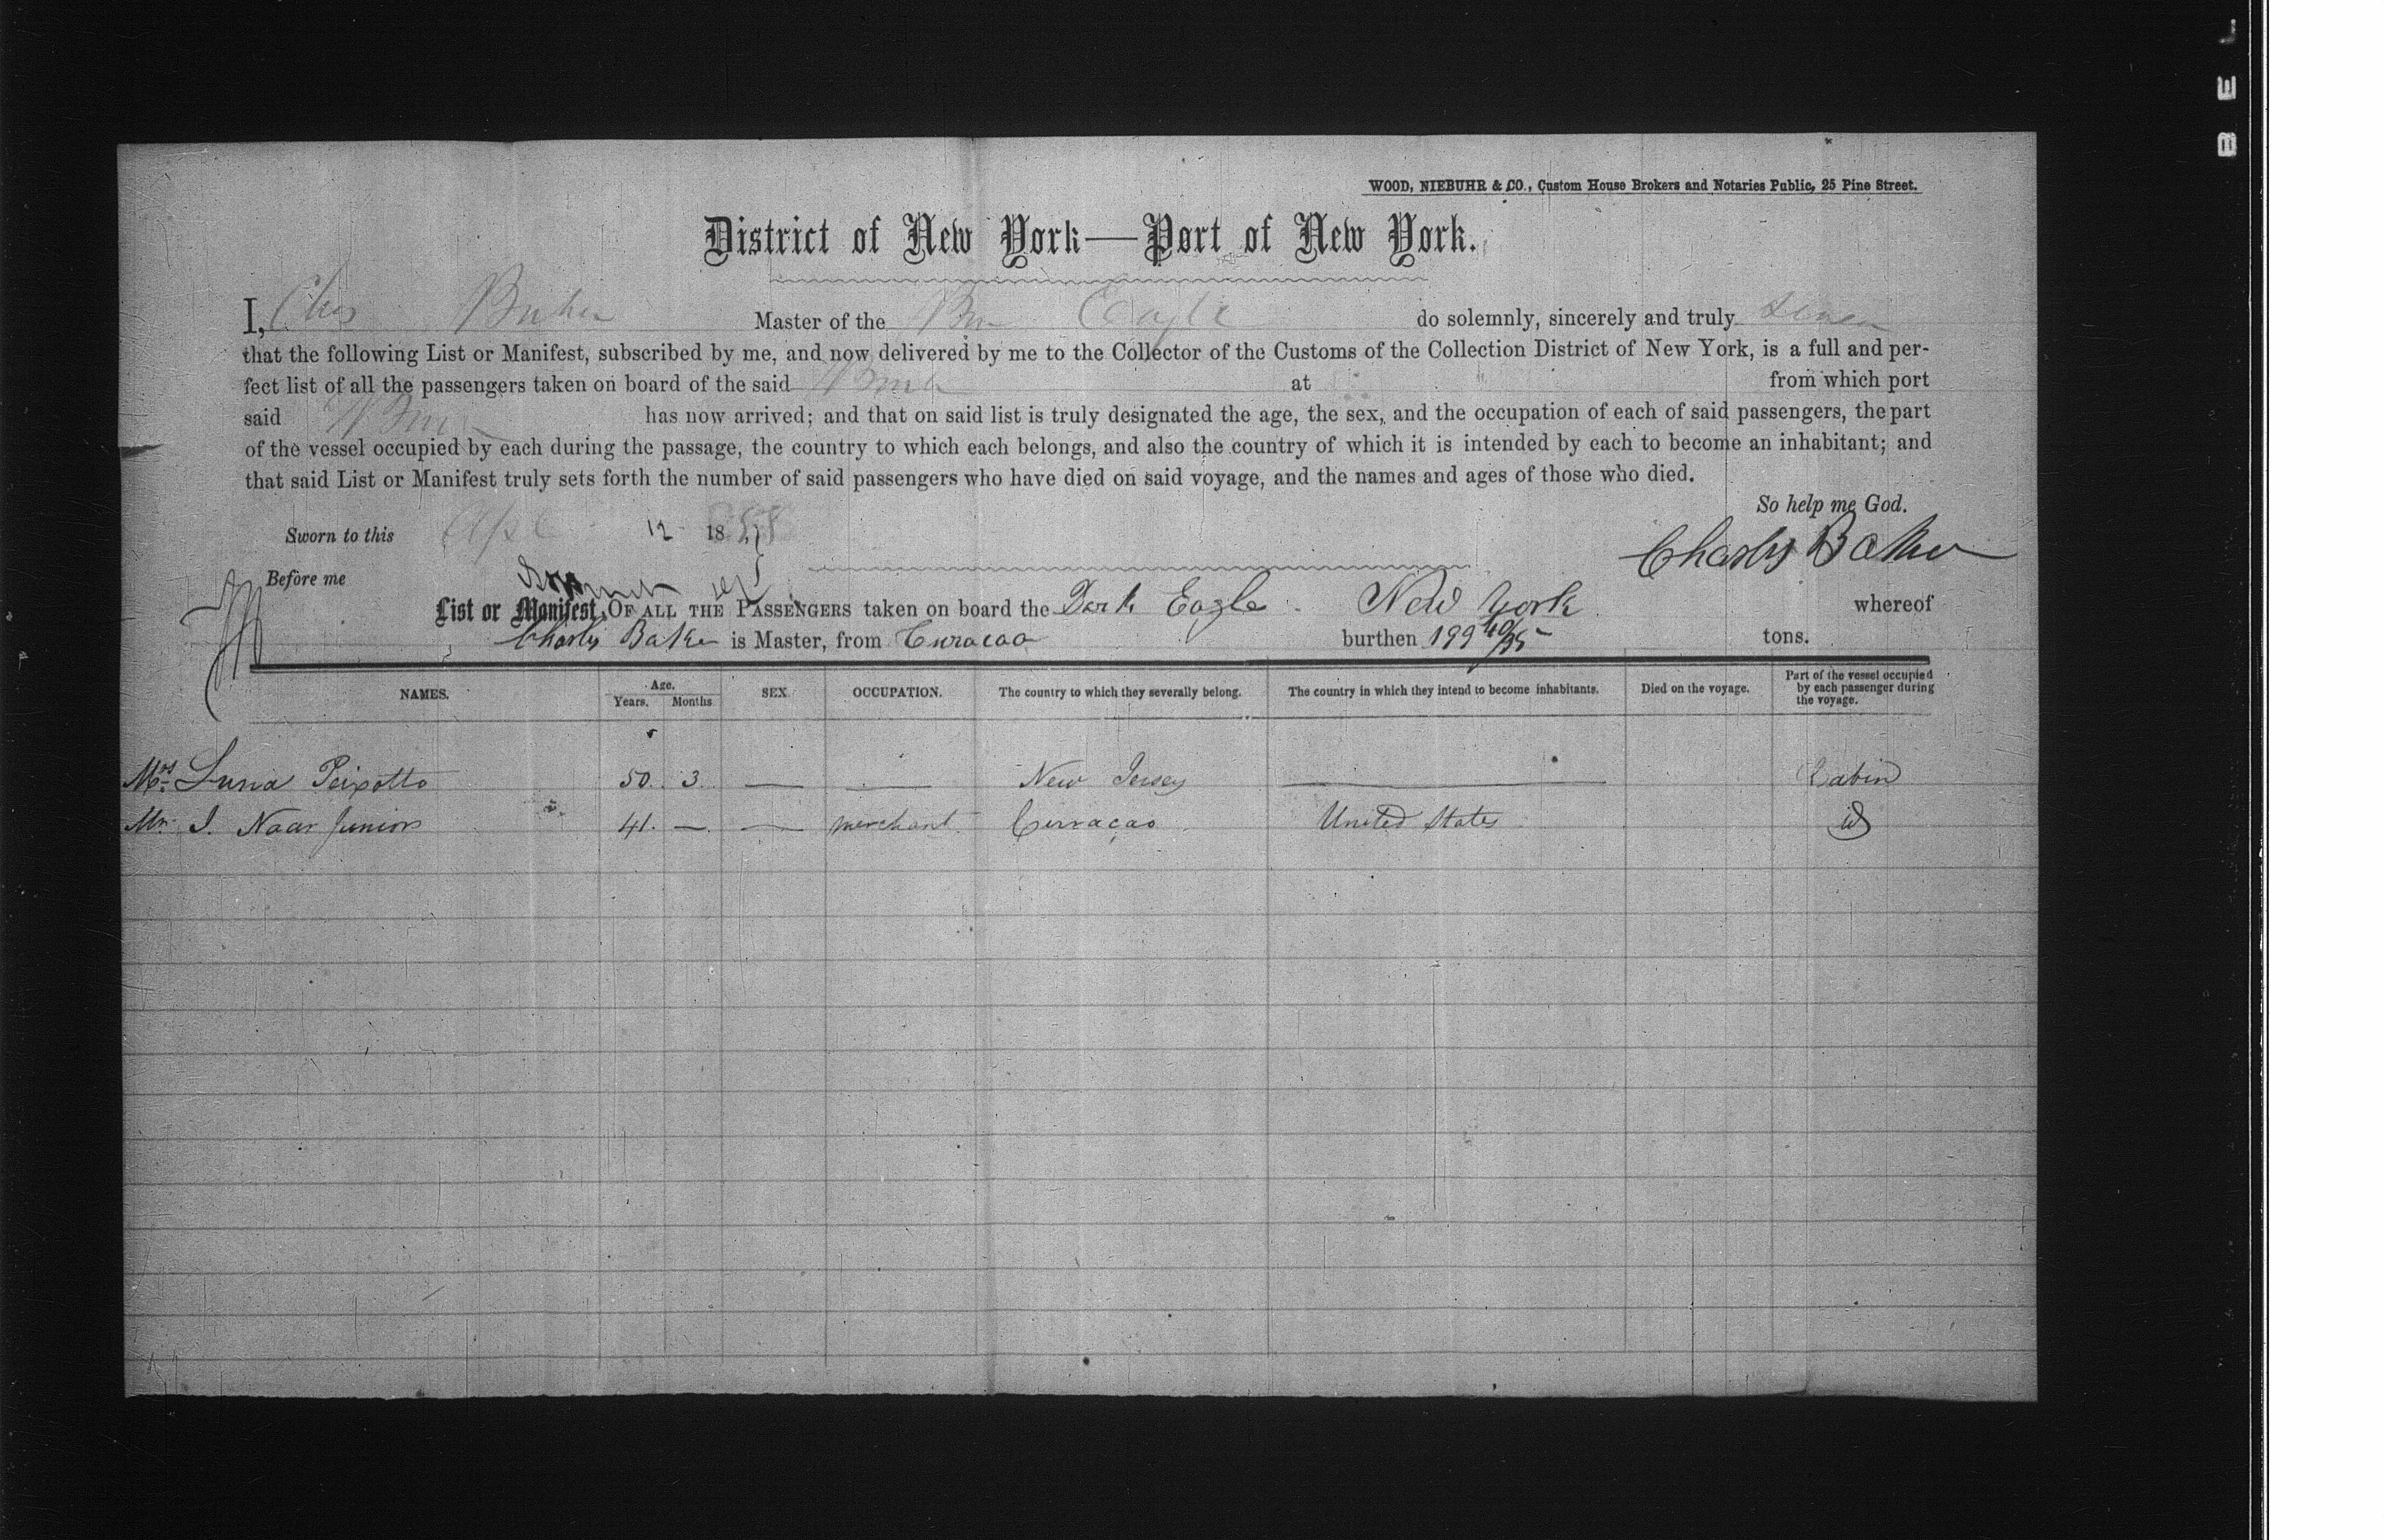 B E L
WOOD, NIEBUHR & CO., Custom House Brokers and Notaries Public, 25 Pine Street.
District of New York—Port of New York.
I, Chas Baker Master of the Eagle do solemnly, sincerely and truly swear
that the following List or Manifest, subscribed by me, and now delivered by me to the Collector of the Customs of the Collection District of New York, is a full and per-
fect list of all the passengers taken on board of the said at from which port
said has now arrived; and that on said list is truly designated the age, the sex, and the occupation of each of said passengers, the part
of the vessel occupied by each during the passage, the country to which each belongs, and also the country of which it is intended by each to become an inhabitant; and
that said List or Manifest truly sets forth the number of said passengers who have died on said voyage, and the names and ages of those who died.
So help me God.
Sworn to this 12 18
Charles Baker
Before me
List or Manifest, OF ALL THE PASSENGERS taken on board the Eagle New York whereof
Charles Baker is Master, from Curacao burthen 199 40/95 tons.
NAMES. Age. Years. Months SEX. OCCUPATION. The country to which they severally belong. The country in which they intend to become inhabitants. Died on the voyage. Part of the vessel occupied by each passenger during the voyage.
Mrs Luna Peixotto 50. 3. — — New Jersey — Cabin
Mr. I. Naar Junior 41. — — merchant Curraçao United States id